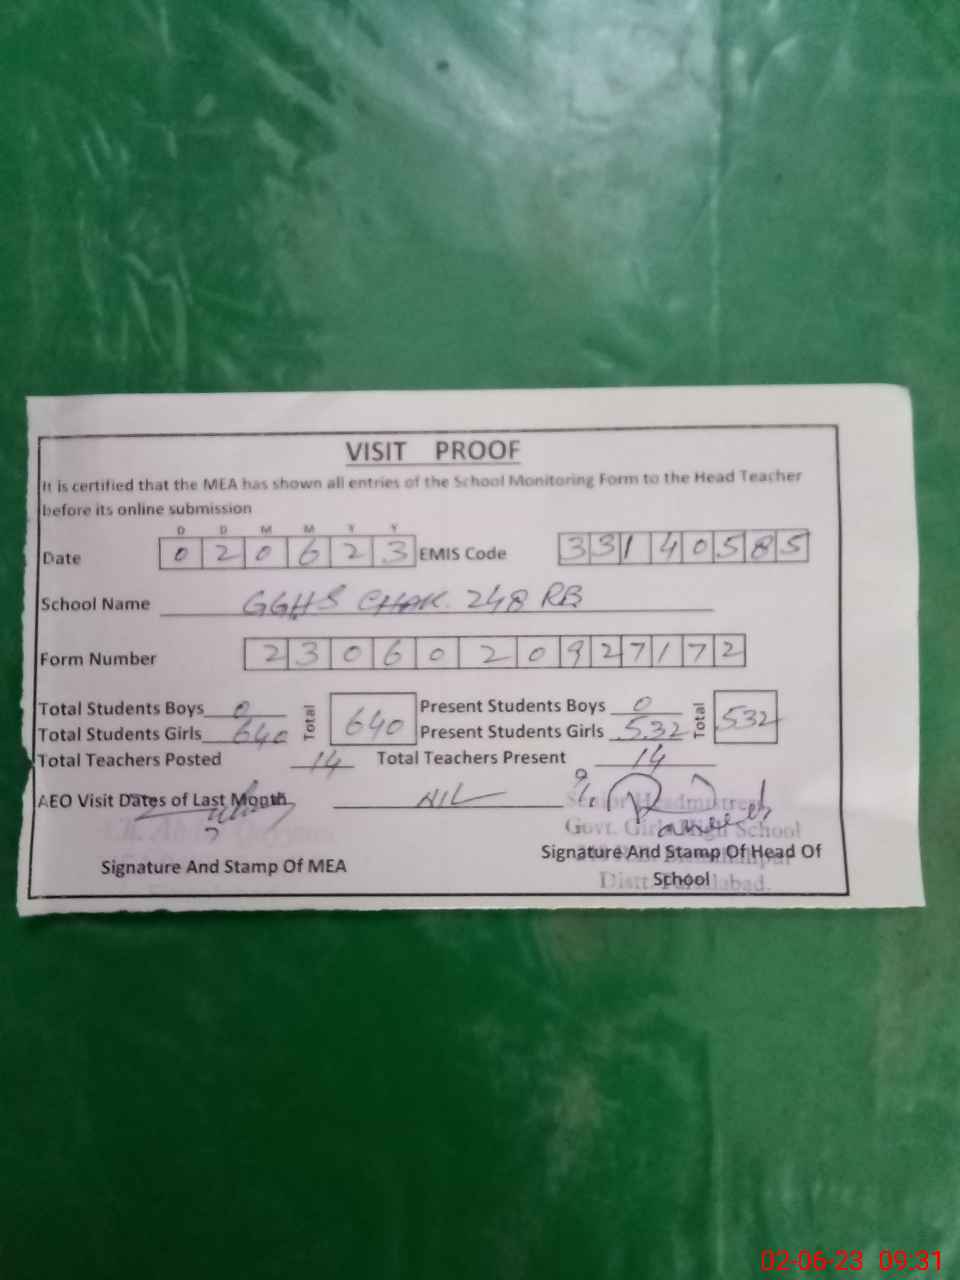 VISIT PROOF
It is certified that the MEA has shown all entries of the School Monitoring Form to the Head Teacher
before its online submission
D D M M Y Y
Date 0 2 0 6 2 3 EMIS Code 3 3 1 4 0 5 8 5
School Name GGHS CHAK. 248 RB
Form Number 2 3 0 6 0 2 0 9 2 7 1 7 2
Total Students Boys 0 Total 640 Present Students Boys 0 Total 532
Total Students Girls 640 Present Students Girls 532
Total Teachers Posted 14 Total Teachers Present 14
AEO Visit Dates of Last Month NIL
Senior Headmistress
Govt. Girls High School
Signature And Stamp Of MEA Signature And Stamp Of Head Of
School
Distt. Faisalabad.
02-06-23 09:31